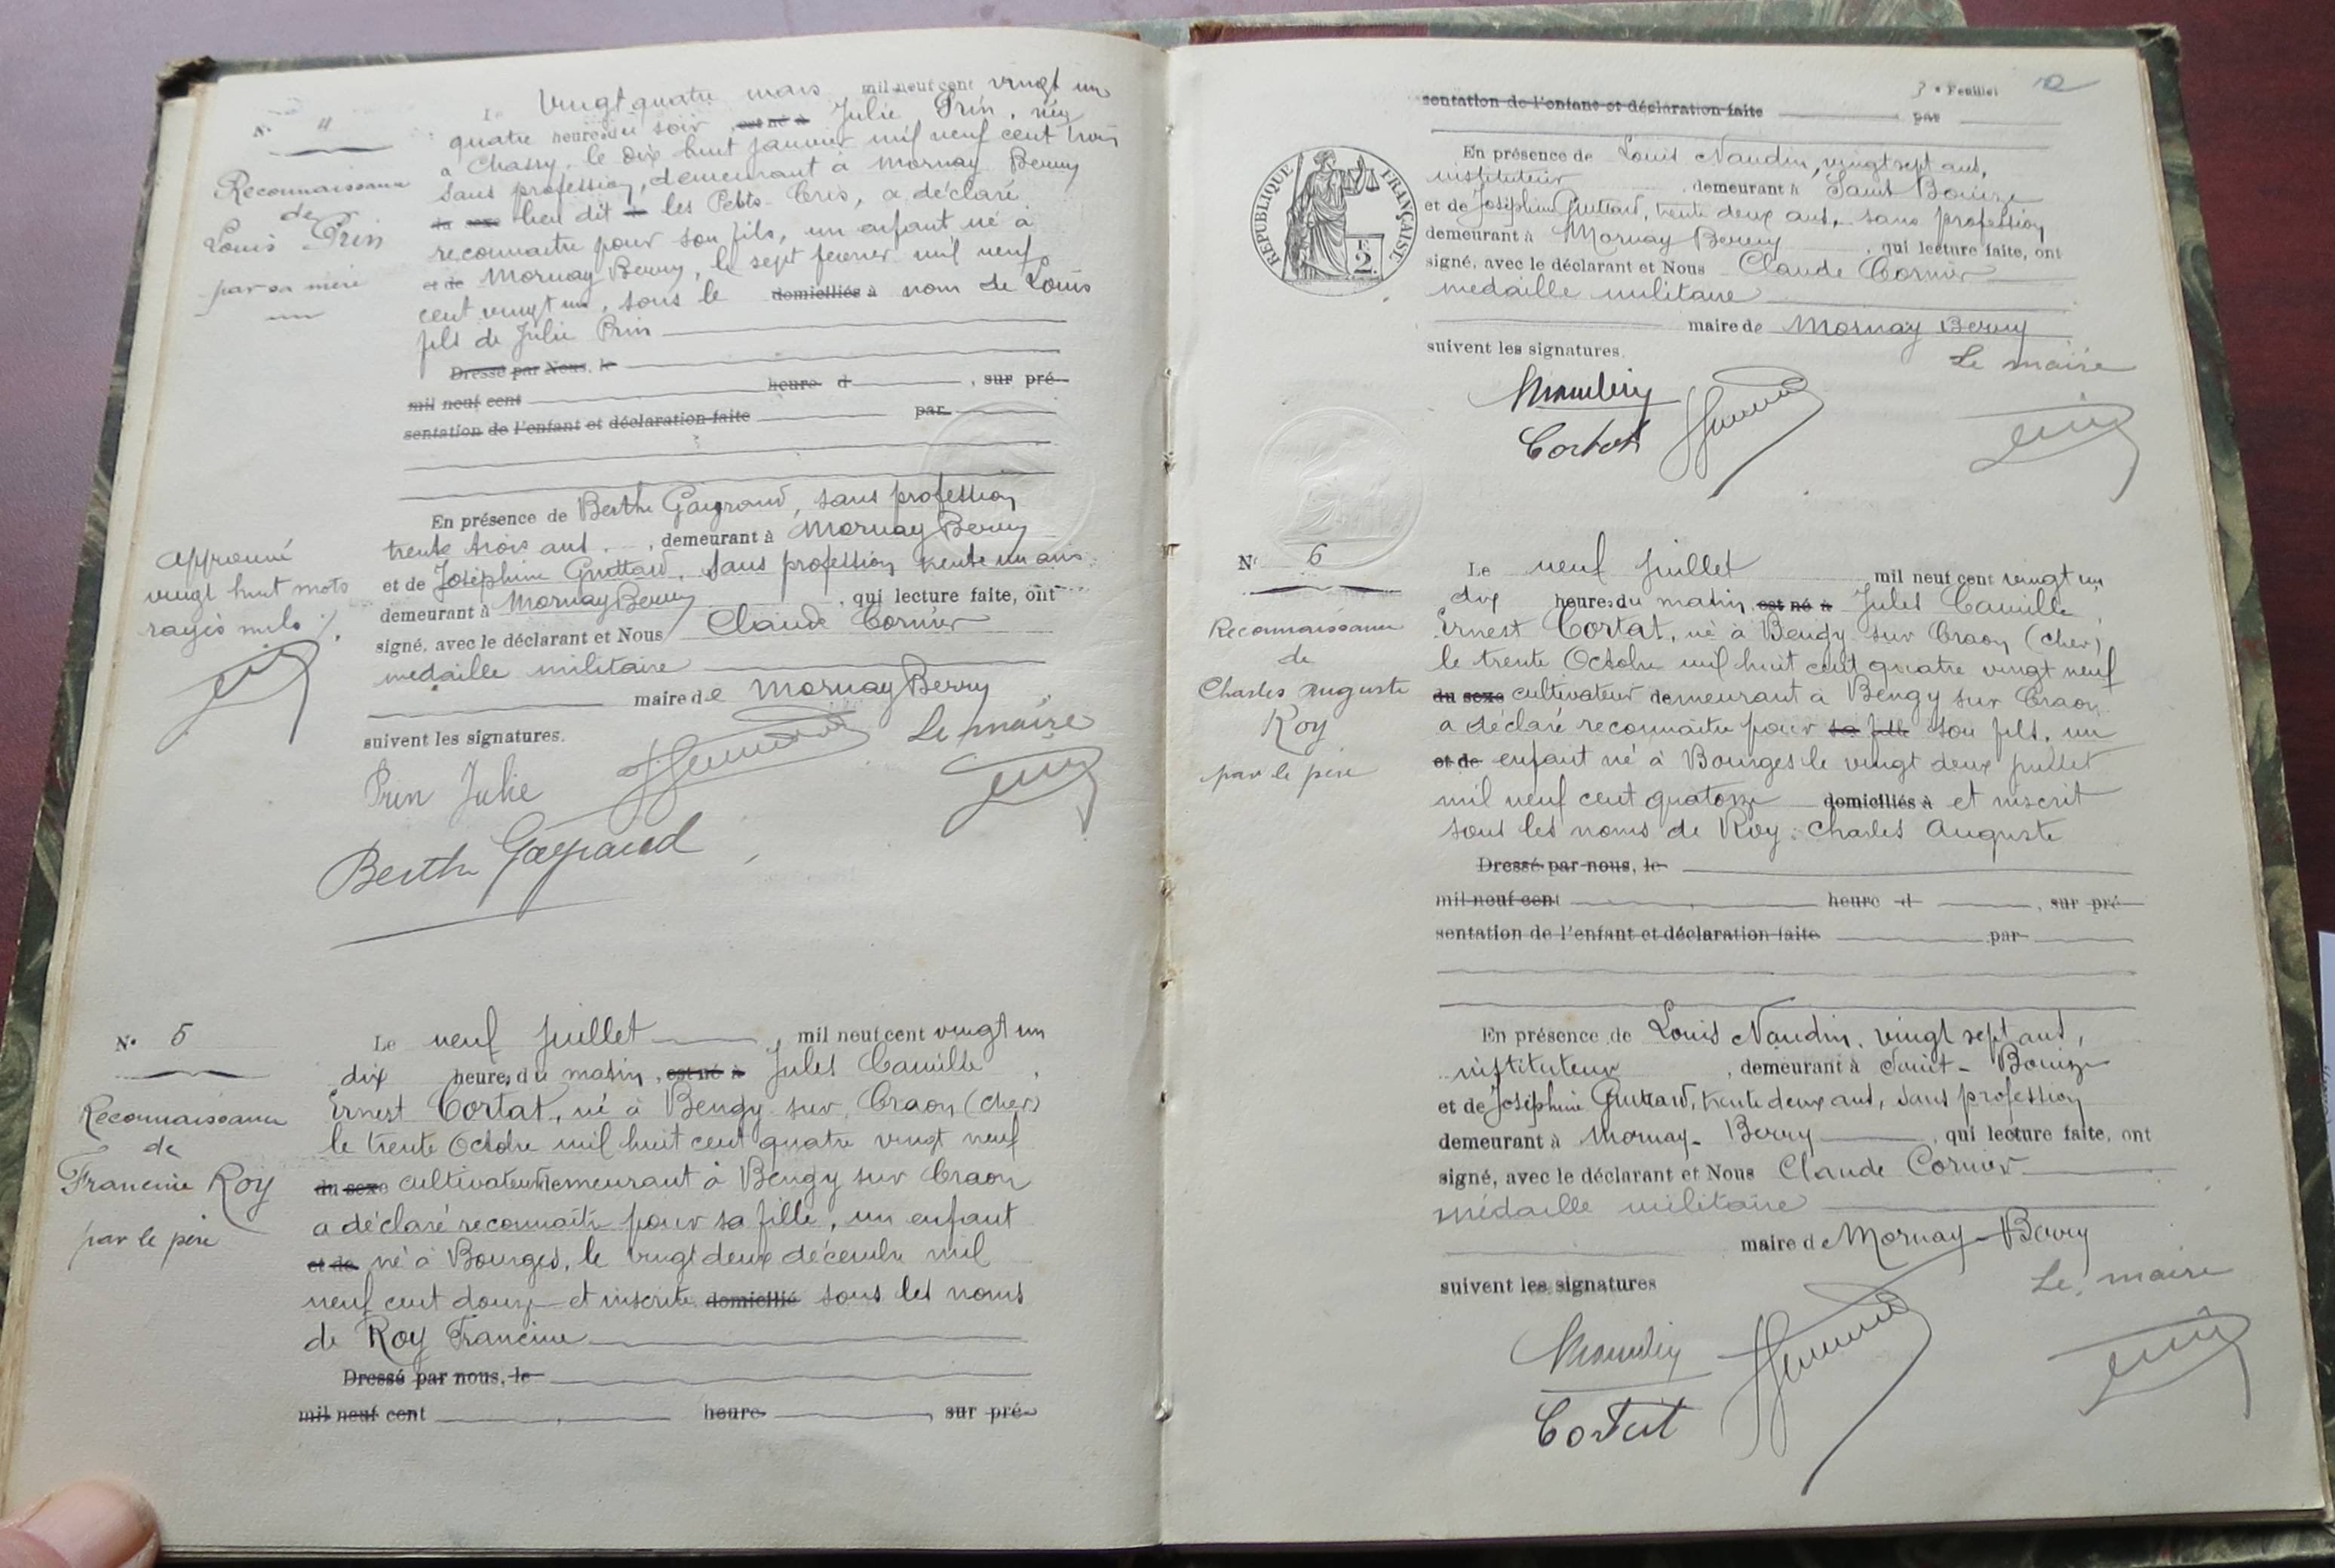 N° 4
Reconnaissance
de
Louis Prin
par sa mère
Le Vingt quatre mars mil neuf cent vingt un
quatre heures du soir, est né à Julie Prin, née
à Chassy, le dix huit janvier mil neuf cent trois
sans profession, demeurant à Mornay Berry
du sexe lieu dit les Petits Cris, a déclaré
reconnaitre pour son fils, un enfant né à
et de Mornay Berry, le sept fevrier mil neuf
cent vingt un, sous le domiciliés à nom de Louis
fils de Julie Prin
Dressé par Nous, le
mil neuf cent heure d , sur pré-
sentation de l'enfant et déclaration faite par
En présence de Berthe Gaugraud, sans profession
trente trois ans, demeurant à Mornay Berry
et de Joséphine Guttard, sans profession trente un ans
demeurant à Mornay Berry, qui lecture faite, ont
signé, avec le déclarant et Nous Claude Cornier
medaille militaire
maire de Mornay Berry
suivent les signatures.
Approuvé
vingt huit mots
rayés nuls
Le maire
Prin Julie
Berthe
N° 5
Reconnaissance
de
Francine Roy
par le père
Le neuf Juillet, mil neuf cent vingt un
dix heures du matin, est né à Jules Camille
Ernest Cortat, né à Bengy sur Craon (Cher)
le trente Octobre mil huit cent quatre vingt neuf
du sexe cultivateur demeurant à Bengy sur Craon
a déclaré reconnaitre pour sa fille, un enfant
et de né à Bourges, le vingt deux décembre mil
neuf cent douze et inscrite domicilié sous les noms
de Roy Francine
Dressé par nous, le
mil neuf cent heure , sur pré-
3e Feuillet
sentation de l'enfant et déclaration faite par
RÉPUBLIQUE FRANÇAISE
2 F.
En présence de Louis Naudin, vingt sept ans,
instituteur, demeurant à Saint Bouize
et de Joséphine Guttard, trente deux ans, sans profession
demeurant à Mornay Berry, qui lecture faite, ont
signé, avec le déclarant et Nous Claude Cornier
medaille militaire
maire de Mornay Berry
suivent les signatures.
Le maire
Naudin
Cortat
N° 6
Reconnaissance
de
Charles Auguste
Roy
par le père
Le neuf Juillet mil neuf cent vingt un
dix heures du matin, est né à Jules Camille
Ernest Cortat, né à Bengy sur Craon (Cher)
le trente Octobre mil huit cent quatre vingt neuf
du sexe cultivateur demeurant à Bengy sur Craon
a déclaré reconnaitre pour sa fille son fils, un
et de enfant né à Bourges le vingt deux juillet
mil neuf cent quatorze domiciliés à et inscrit
sous les noms de Roy Charles Auguste
Dressé par nous, le
mil neuf cent heure d , sur pré-
sentation de l'enfant et déclaration faite par
En présence de Louis Naudin, vingt sept ans,
instituteur, demeurant à Saint-Bouize
et de Joséphine Guttard, trente deux ans, sans profession
demeurant à Mornay-Berry, qui lecture faite, ont
signé, avec le déclarant et Nous Claude Cornier
médaille militaire
maire de Mornay-Berry
suivent les signatures
Le maire
Naudin
Cortat